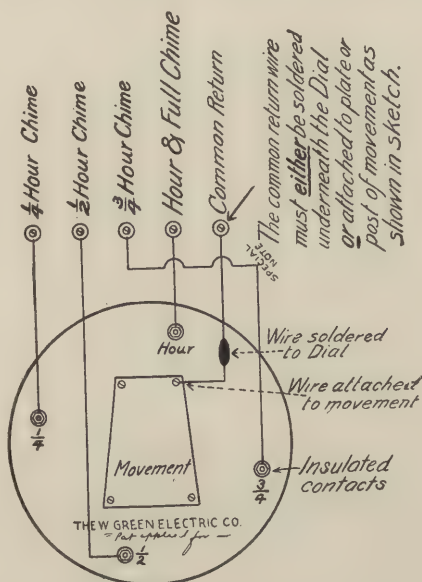 1/4 Hour Chime
1/2 Hour Chime
3/4 Hour Chime
Hour & Full Chime
Common Return
SPECIAL NOTE
The common return wire
must either be soldered
underneath the Dial
or attached to plate or
post of movement as
shown in sketch.
Hour
Wire soldered
to Dial
Wire attached
to movement
1/4
Movement
3/4
Insulated
contacts
THE W GREEN ELECTRIC CO.
Pat applied for
1/2